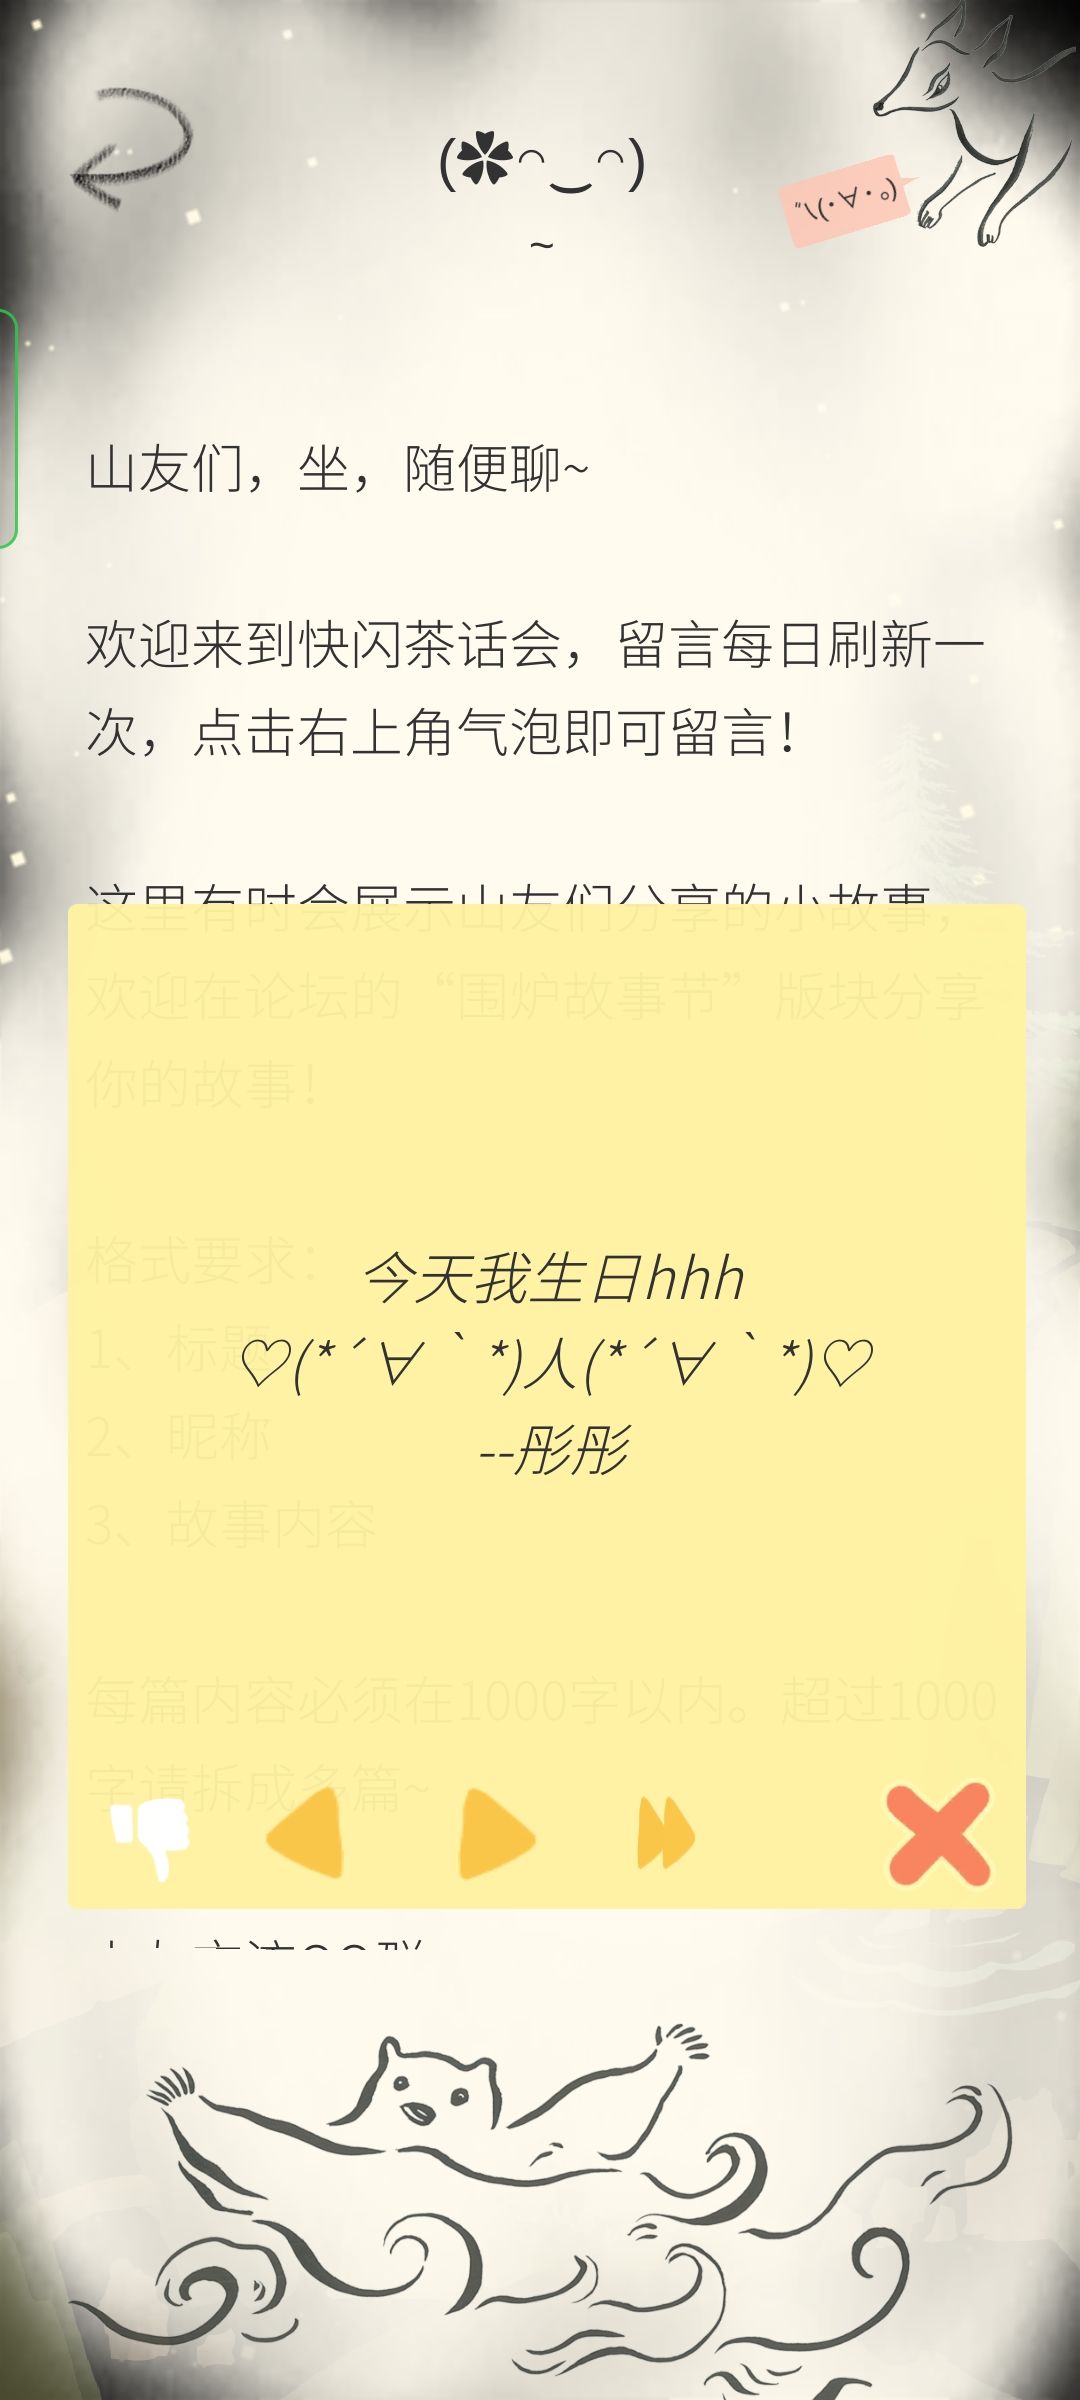 (✿◠‿◠)
~
(°・∀・)ﾉ"
山友们，坐，随便聊~
欢迎来到快闪茶话会，留言每日刷新一
次，点击右上角气泡即可留言！
这里有时会展示山友们分享的小故事，
欢迎在论坛的“围炉故事节”版块分享
你的故事！
格式要求：
1、标题
2、昵称
3、故事内容
今天我生日hhh
♡(*´∀｀*)人(*´∀｀*)♡
--彤彤
每篇内容必须在1000字以内。超过1000
字请拆成多篇~